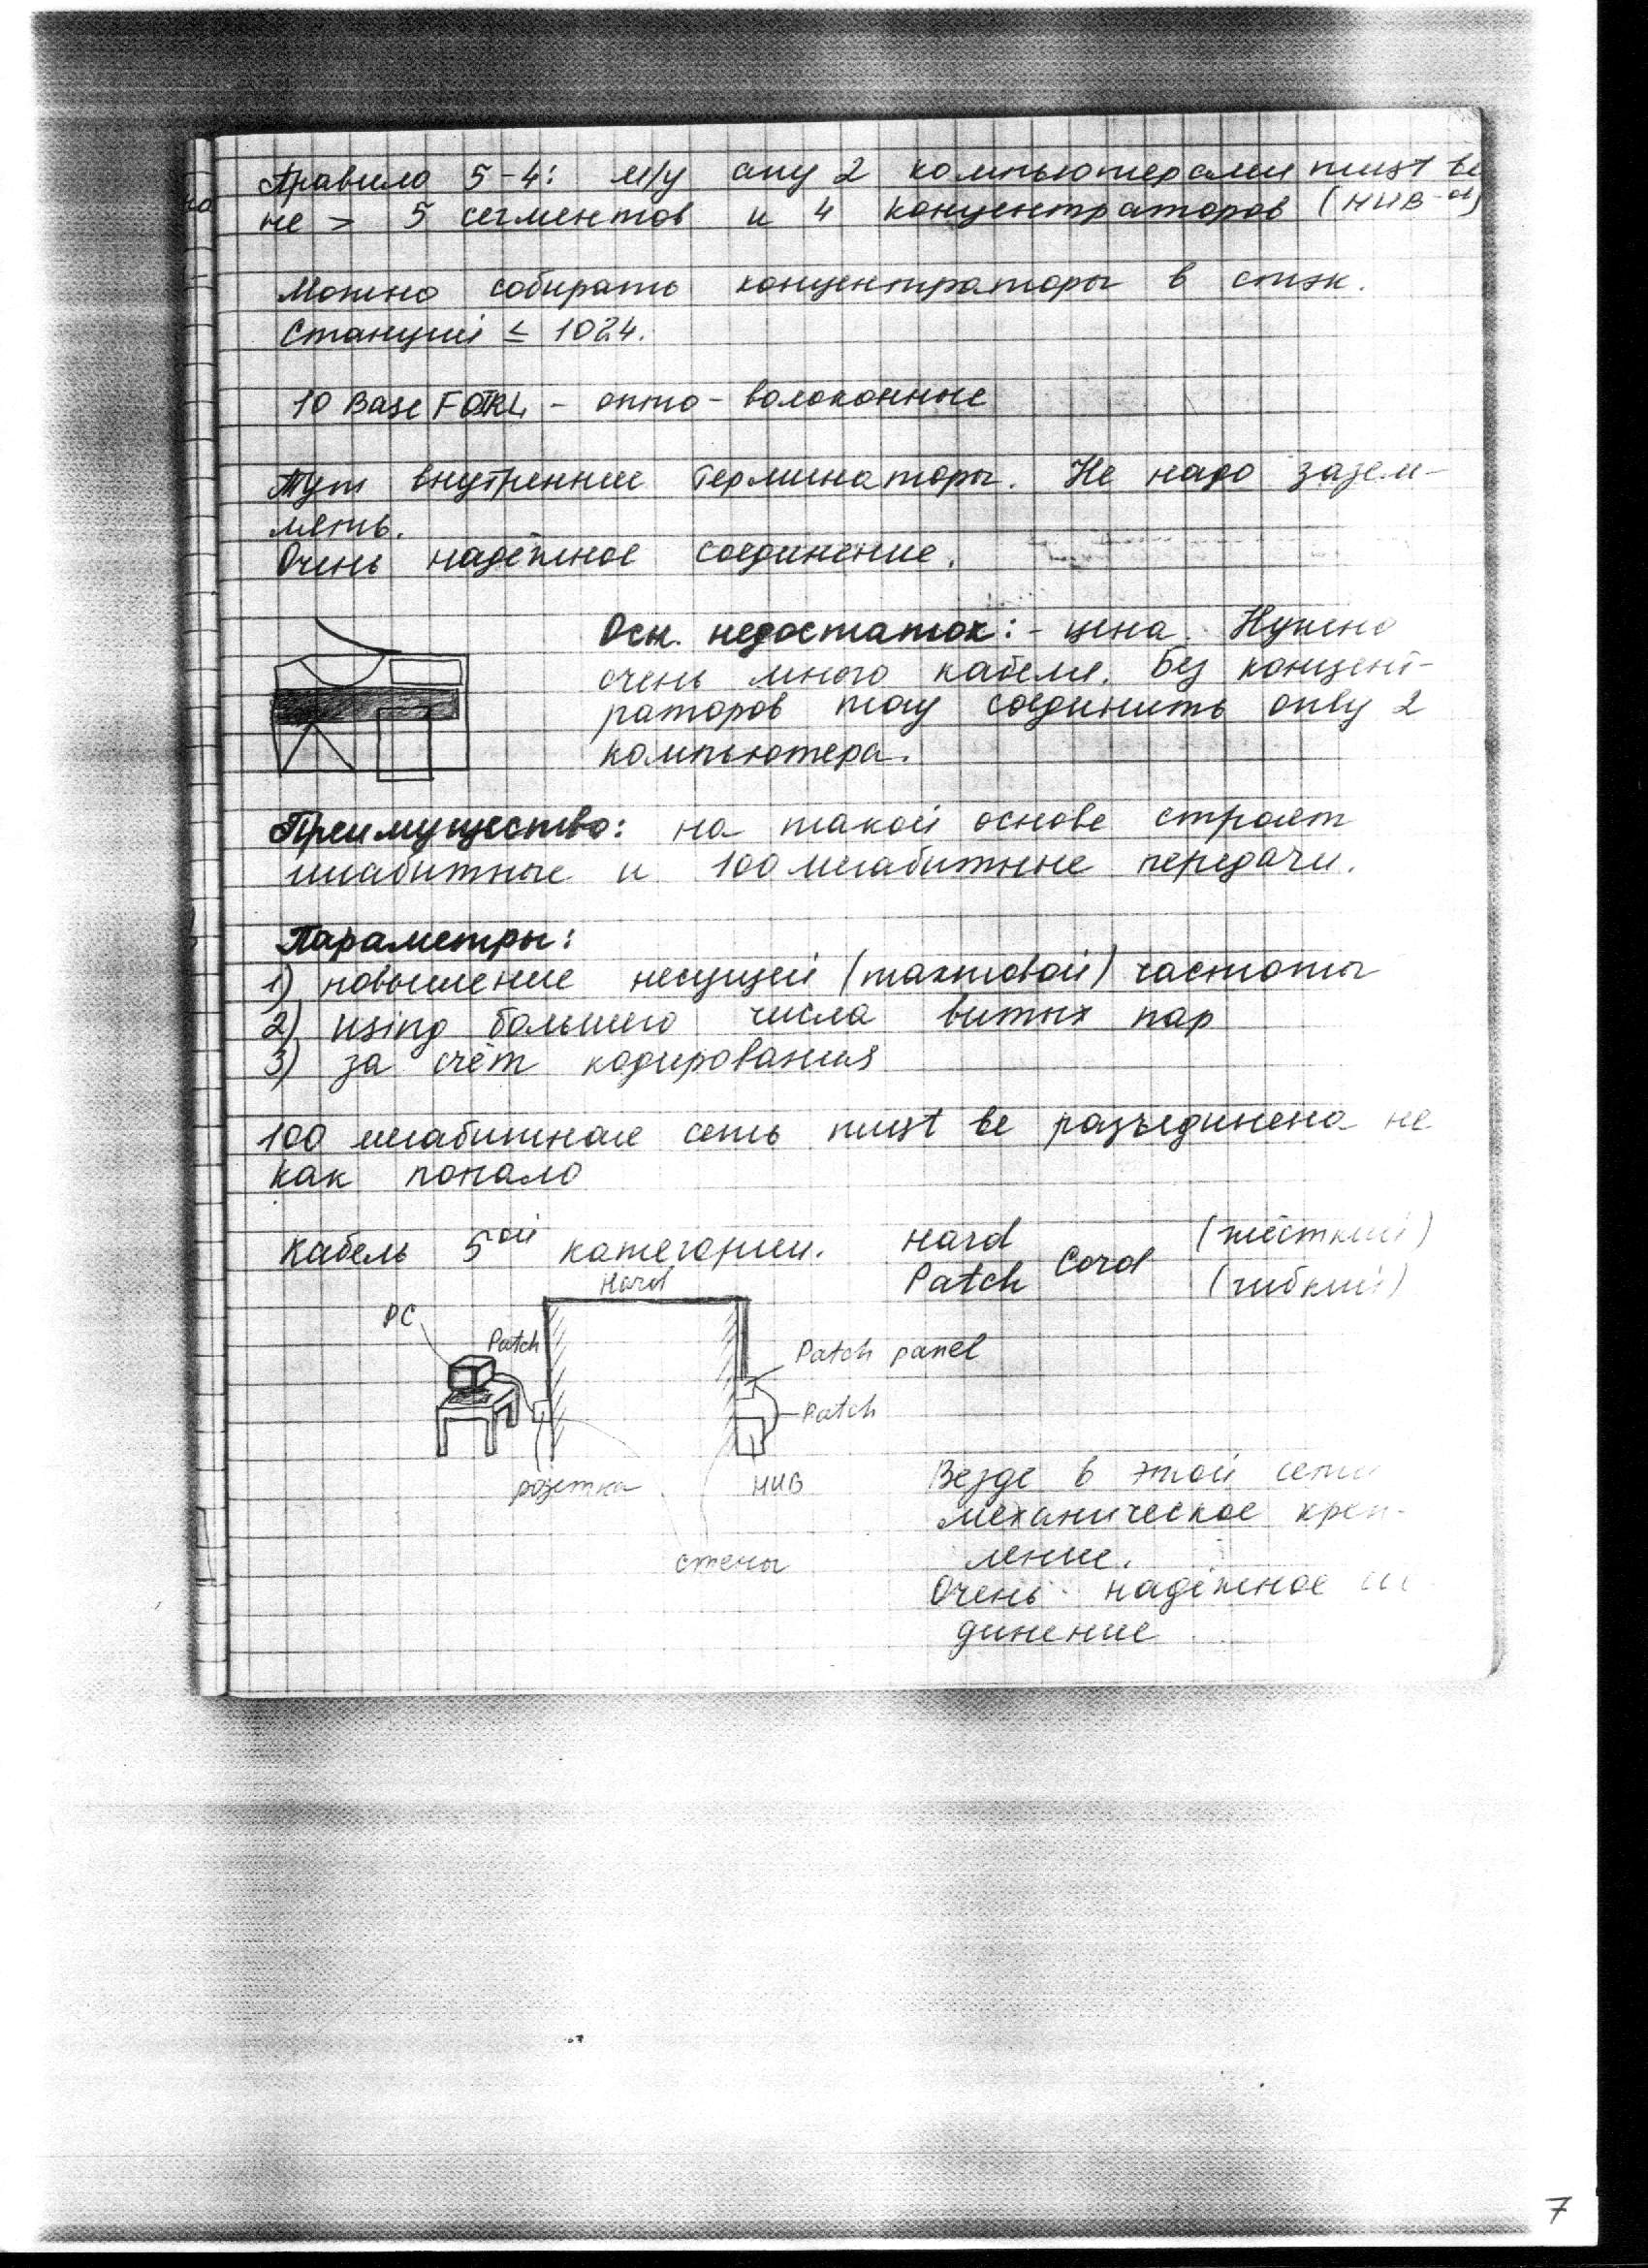 Правило 5-4: м/у any 2 компьютерами must be
не > 5 сегментов и 4 концентраторов (HUB-ов)
Можно собирать концентраторы в стэк.
Станций ≤ 1024.
10 Base - опто-волоконные
Тут внутренние терминаторы. Не надо зазем-
лять.
Очень надёжное соединение.
Осн. недостаток: - цена. Нужно
очень много кабеля. Без концент-
раторов may соединить only 2
компьютера.
Преимущество: на такой основе строят
и 100 мегабитные передачи.
Параметры:
1) повышение несущей (тактовой) частоты
2) using большего числа витых пар
3) за счёт кодирования
100 мегабитная сеть must be разъединена не
как попало
Кабель 5ой категории.
Hard (жёсткий)
Cord
Patch (гибкий)
Hard
PC
Patch
Patch panel
Patch
розетка
HUB
стены
Везде в этой сети
механическое креп-
ление.
Очень надёжное
динение
7